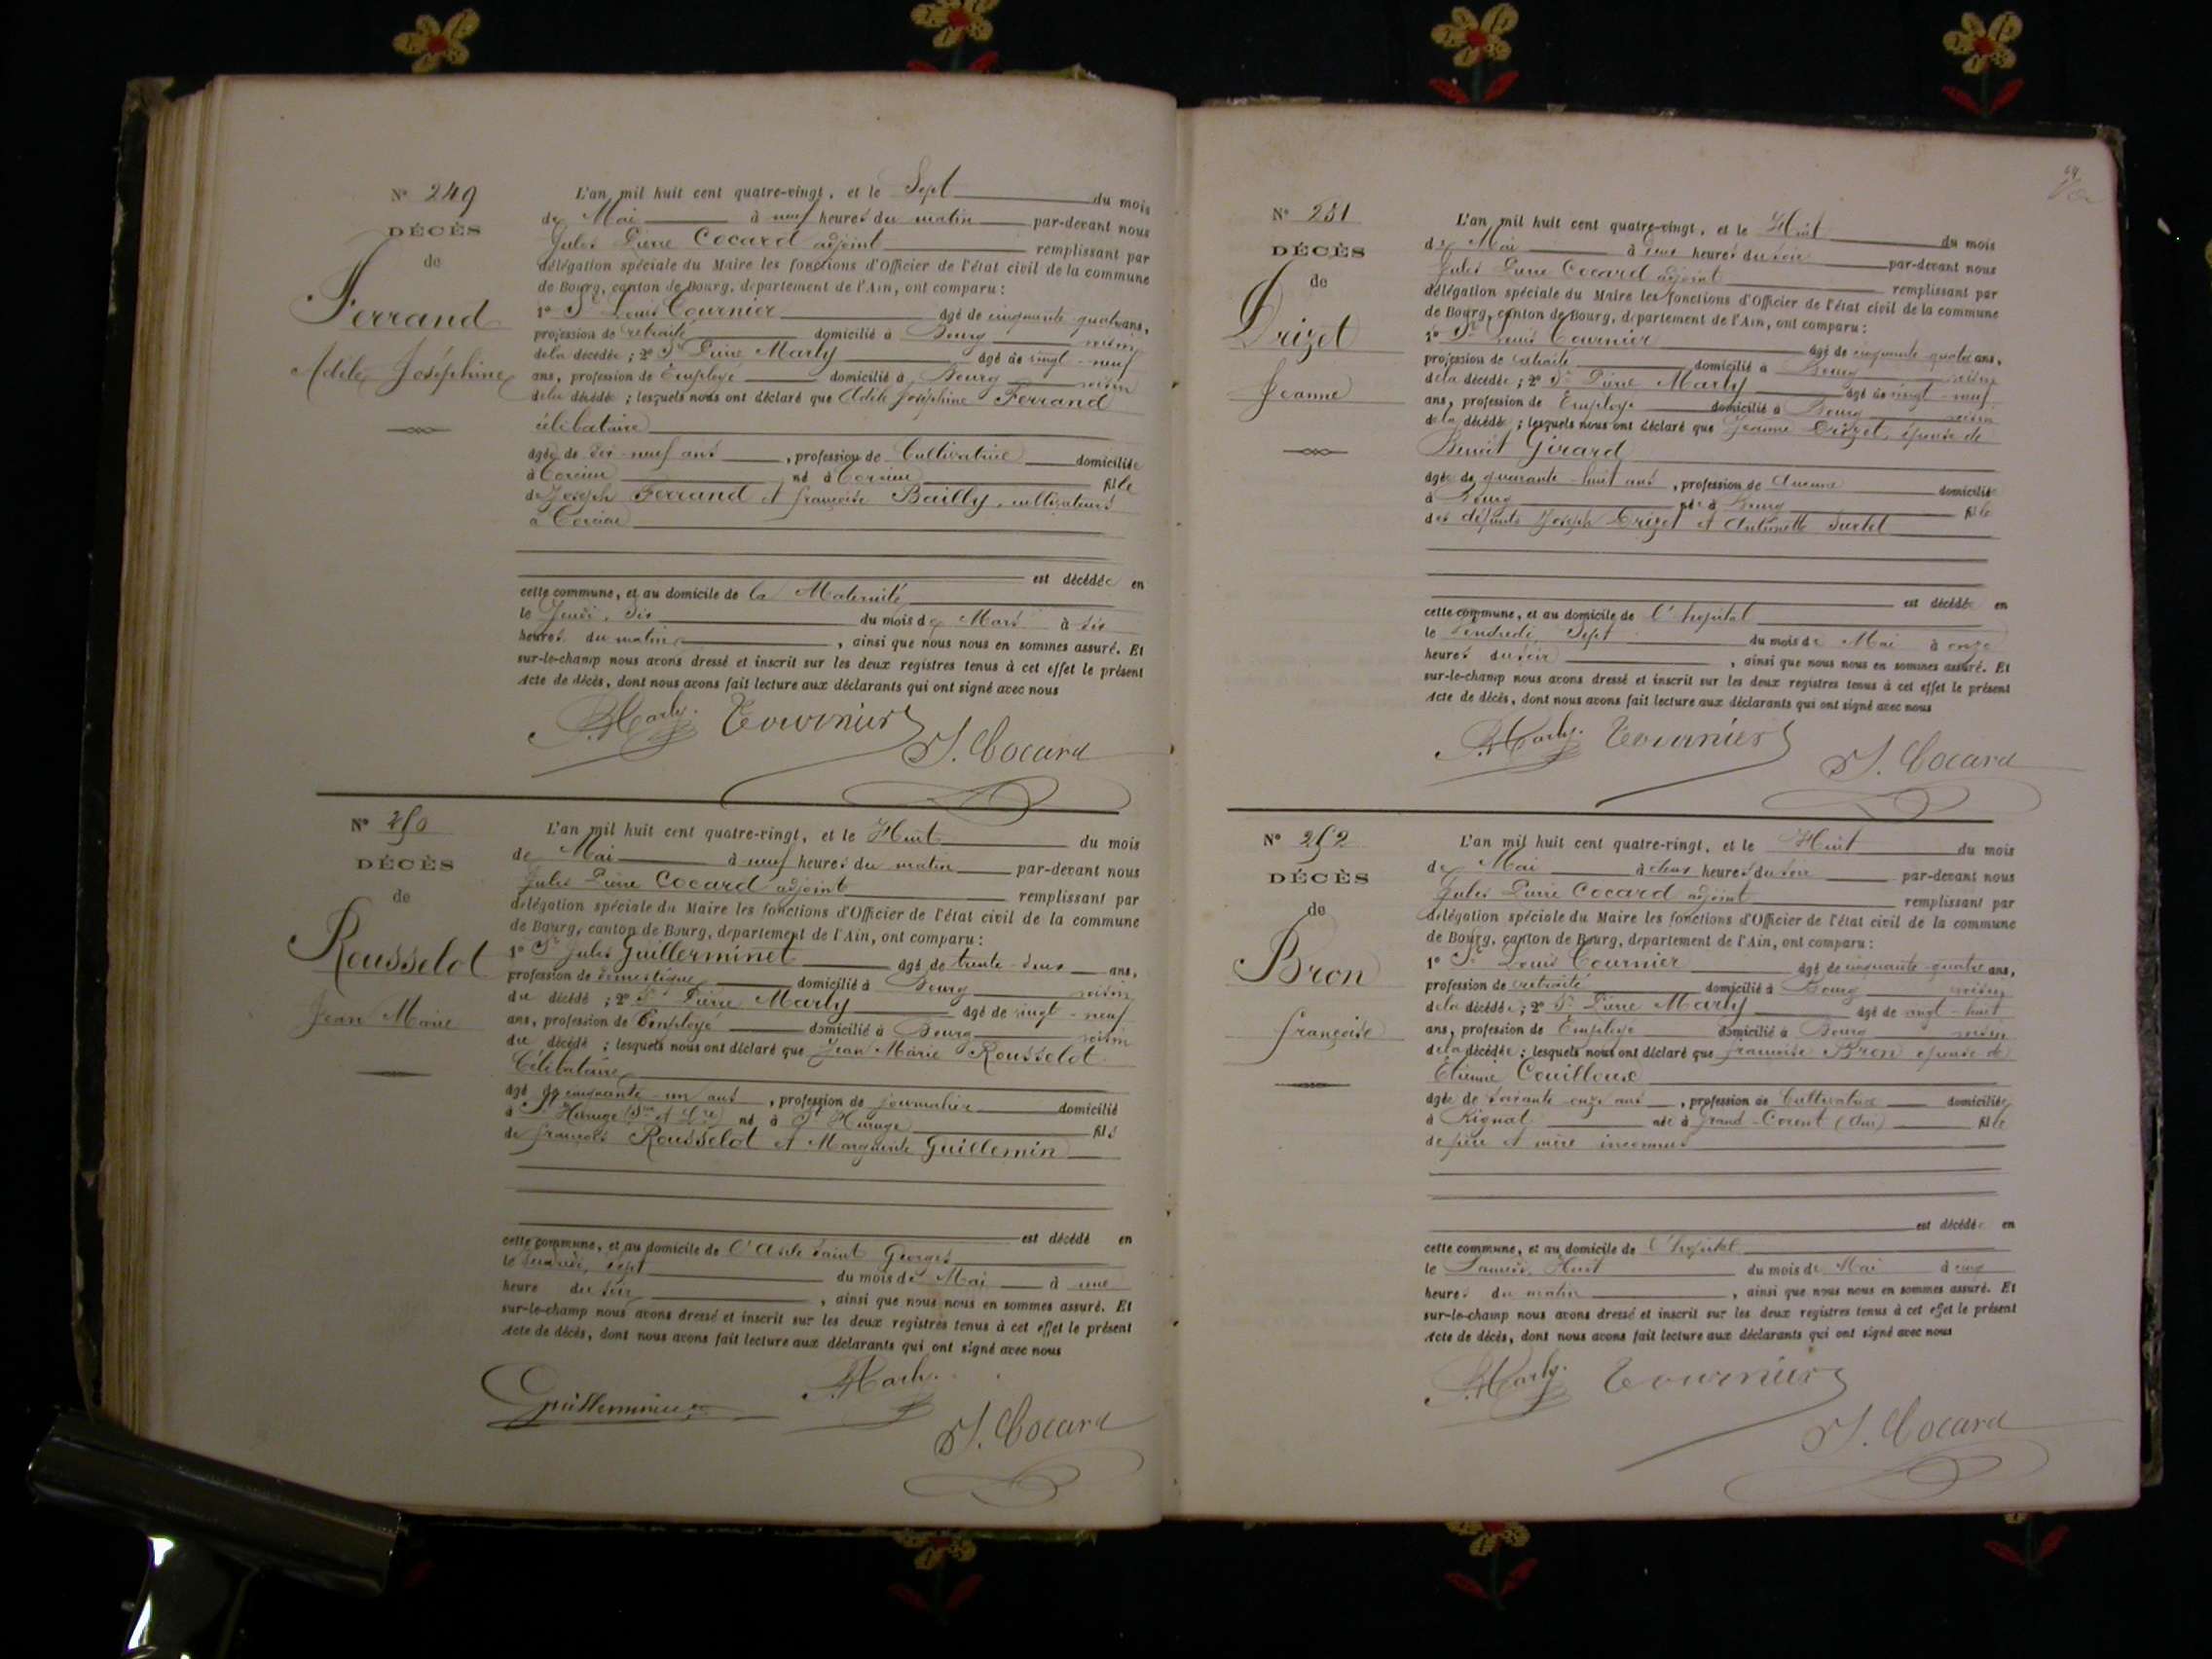 N° 249
DÉCÈS
de
Ferrand
Adèle Joséphine
L'an mil huit cent quatre-vingt, et le Sept du mois
de Mai à neuf heures du matin par-devant nous
Jules Pierre Cocard adjoint remplissant par
délégation spéciale du Maire les fonctions d'Officier de l'état civil de la commune
de Bourg, canton de Bourg, département de l'Ain, ont comparu :
1° Sr Louis Tournier agé de cinquante-quatre ans,
profession de retraité domicilié à Bourg voisin
de la décédée ; 2° Sr Pierre Marly agé de vingt-neuf
ans, profession de Employé domicilié à Bourg voisin
de la décédée ; lesquels nous ont déclaré que Adèle Joséphine Ferrand
célibataire
agée de dix-neuf ans, profession de Cultivatrice domiciliée
à né à fille
de Joseph Ferrand et françoise Bailly, cultivateurs
à
est décédée en
cette commune, et au domicile de la Maternité
le Jeudi, six du mois de à six
heures du matin, ainsi que nous nous en sommes assuré. Et
sur-le-champ nous avons dressé et inscrit sur les deux registres tenus à cet effet le présent
Acte de décès, dont nous avons fait lecture aux déclarants qui ont signé avec nous
P. Marly. Tournier
J. Cocard
N° 250
DÉCÈS
de
Rousselot
Jean Marie
L'an mil huit cent quatre-vingt, et le Huit du mois
de Mai à neuf heures du matin par-devant nous
Jules Pierre Cocard adjoint remplissant par
délégation spéciale du Maire les fonctions d'Officier de l'état civil de la commune
de Bourg, canton de Bourg, département de l'Ain, ont comparu :
1° Sr Jules Guillerminet agé de trente-deux ans,
profession de domestique domicilié à Bourg voisin
du décédé ; 2° Sr Pierre Marly agé de vingt-neuf
ans, profession de Employé domicilié à Bourg voisin
du décédé ; lesquels nous ont déclaré que Jean Marie Rousselot
Célibataire
agé de cinquante-un ans, profession de journalier domicilié
à St Huruge (Sne et Lre) né à St Huruge fils
de françois Rousselot et Marguerite Guillemin
est décédé en
cette commune, et au domicile de l'Asile Saint Georges
le sept du mois de Mai à une
heure du soir, ainsi que nous nous en sommes assuré. Et
sur-le-champ nous avons dressé et inscrit sur les deux registres tenus à cet effet le présent
Acte de décès, dont nous avons fait lecture aux déclarants qui ont signé avec nous
Guillerminet P. Marly.
J. Cocard
N° 251
DÉCÈS
de
Drizet
Jeanne
L'an mil huit cent quatre-vingt, et le Huit du mois
de Mai à deux heures du soir par-devant nous
Jules Pierre Cocard adjoint remplissant par
délégation spéciale du Maire les fonctions d'Officier de l'état civil de la commune
de Bourg, canton de Bourg, département de l'Ain, ont comparu :
1° Sr Louis Tournier agé de cinquante-quatre ans,
profession de retraité domicilié à Bourg voisin
de la décédée ; 2° Sr Pierre Marly agé de vingt-neuf
ans, profession de Employé domicilié à Bourg voisin
de la décédée ; lesquels nous ont déclaré que Jeanne Drizet, épouse de
Benoît Girard
agée de quarante-huit ans, profession de Aucune domiciliée
à Bourg née à Bourg fille
des défunts Joseph Drizet et Antoinette
est décédée en
cette commune, et au domicile de l'hopital
le Vendredi Sept du mois de Mai à onze
heures du soir, ainsi que nous nous en sommes assuré. Et
sur-le-champ nous avons dressé et inscrit sur les deux registres tenus à cet effet le présent
Acte de décès, dont nous avons fait lecture aux déclarants qui ont signé avec nous
P. Marly. Tournier
J. Cocard
N° 252
DÉCÈS
de
Bron
françoise
L'an mil huit cent quatre-vingt, et le Huit du mois
de Mai à deux heures du soir par-devant nous
Jules Pierre Cocard adjoint remplissant par
délégation spéciale du Maire les fonctions d'Officier de l'état civil de la commune
de Bourg, canton de Bourg, département de l'Ain, ont comparu :
1° Sr Louis Tournier agé de cinquante-quatre ans,
profession de retraité domicilié à Bourg voisin
de la décédée ; 2° Sr Pierre Marly agé de vingt-huit
ans, profession de Employé domicilié à Bourg voisin
de la décédée ; lesquels nous ont déclaré que françoise Bron épouse de
Etienne Couilloux
agée de soixante-onze ans, profession de Cultivatrice domiciliée
à Rignat née à Grand-Corent (Ain) fille
de père et mère inconnus
est décédée en
cette commune, et au domicile de l'hopital
le Samedi, Huit du mois de Mai à
heures du matin, ainsi que nous nous en sommes assuré. Et
sur-le-champ nous avons dressé et inscrit sur les deux registres tenus à cet effet le présent
Acte de décès, dont nous avons fait lecture aux déclarants qui ont signé avec nous
P. Marly. Tournier
J. Cocard